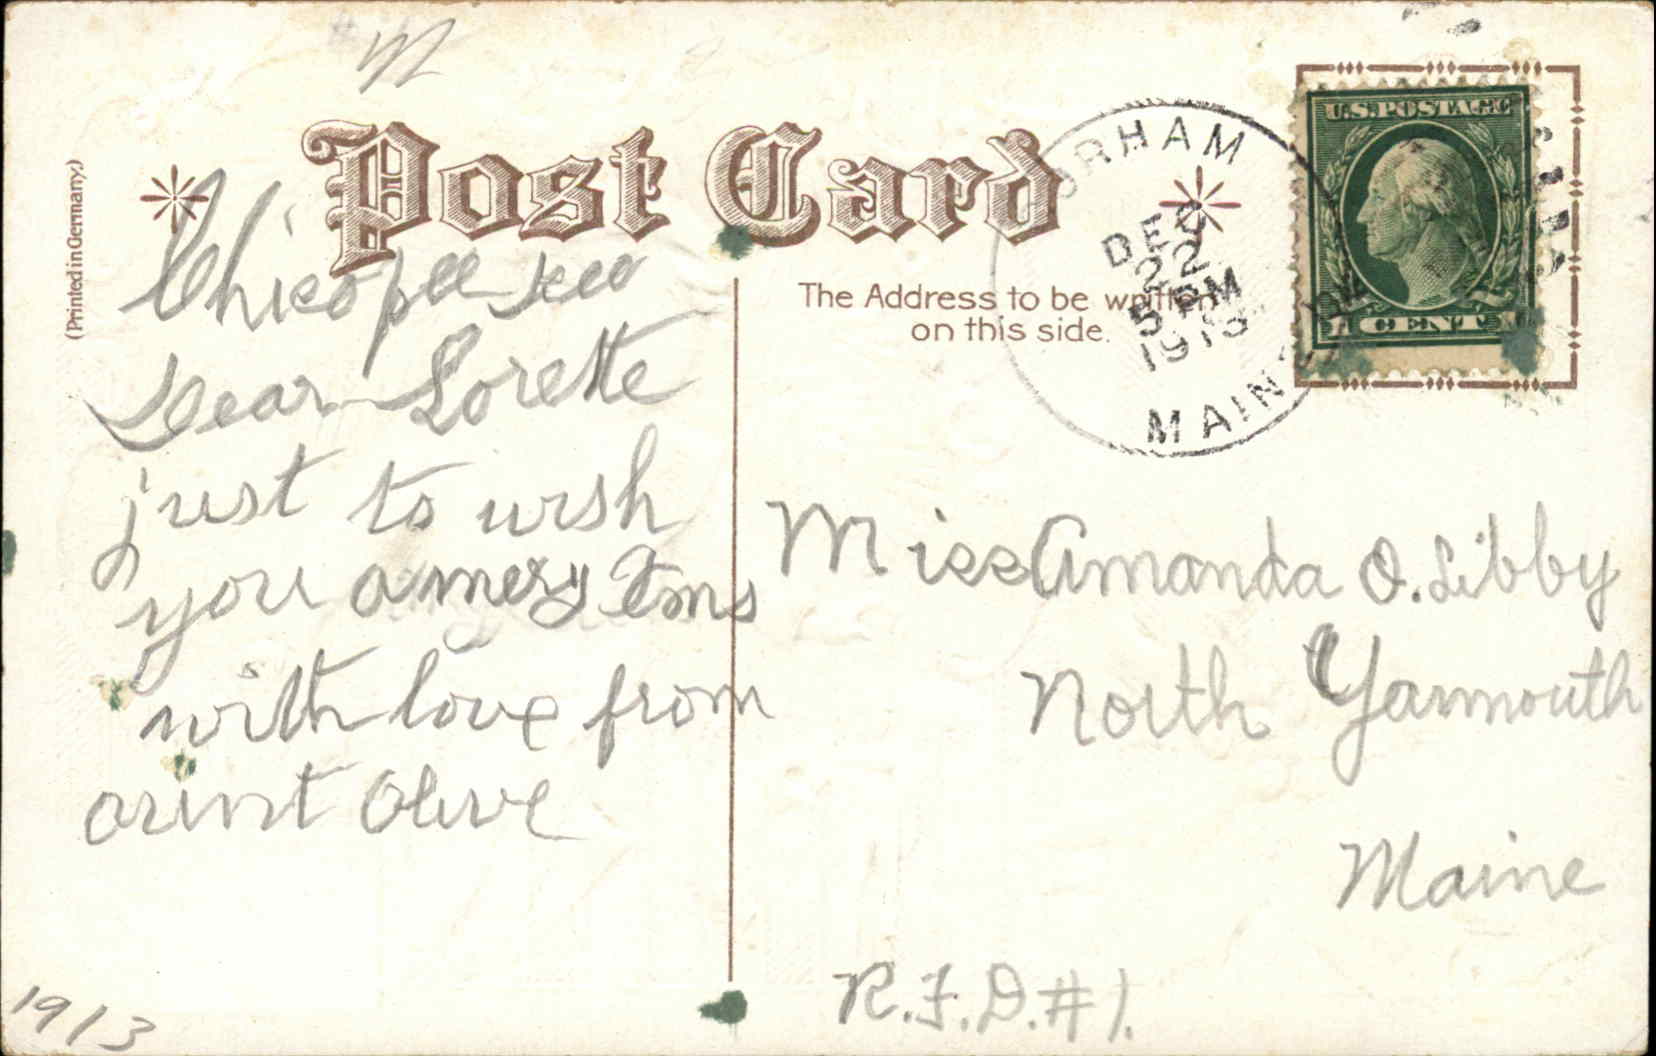 M
Post Card
(Printed in Germany.)
The Address to be written
on this side.
U.S. POSTAGE
1 CENT 1
DEC
22
5 PM
1913
MAINE
Chicopee Dec
Dear Lorette
just to wish
you a mery Xmas
with love from
aunt Olive
1913
Miss Amanda O. Libby
North Yarmouth
Maine
R.F.D. #1.